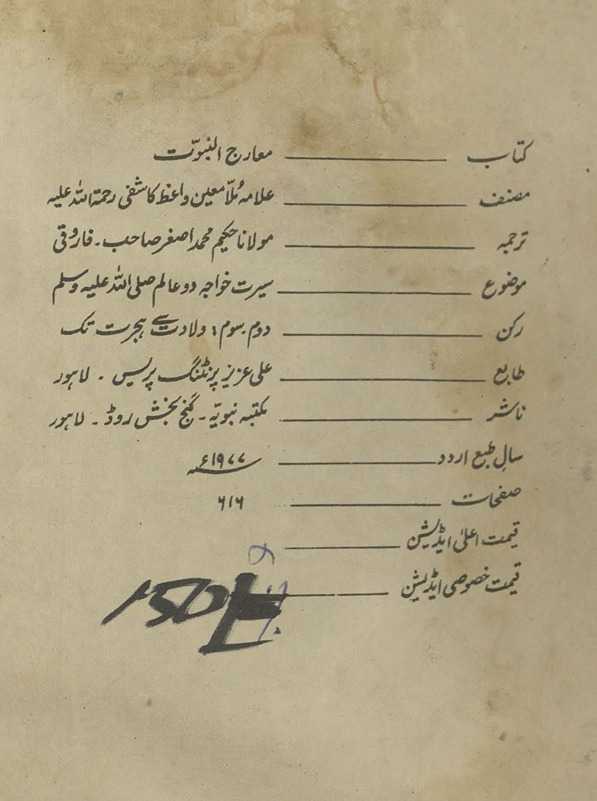 کتاب ——— معارج النبوّت
مصنف ——— علامہ مُلّا معین واعظ کاشفی رحمۃ اللہ علیہ
ترجمہ ——— مولانا حکیم محمد اصغر صاحب ۔ فاروقی
موضوع ——— سیرت خواجہ دو عالم صلی اللہ علیہ وسلم
رکن ——— دوم سوم: ولادت سے ہجرت تک
طابع ——— علی عزیز پرنٹنگ پریس ۔ لاہور
ناشر ——— مکتبہ نبویّہ ۔ گنج بخش روڈ ۔ لاہور
سالِ طبع اردو ——— ۱۹۷۷ء
صفحات ——— ۶۱۶
قیمت اعلیٰ ایڈیشن ———
قیمت خصوصی ایڈیشن ———
150